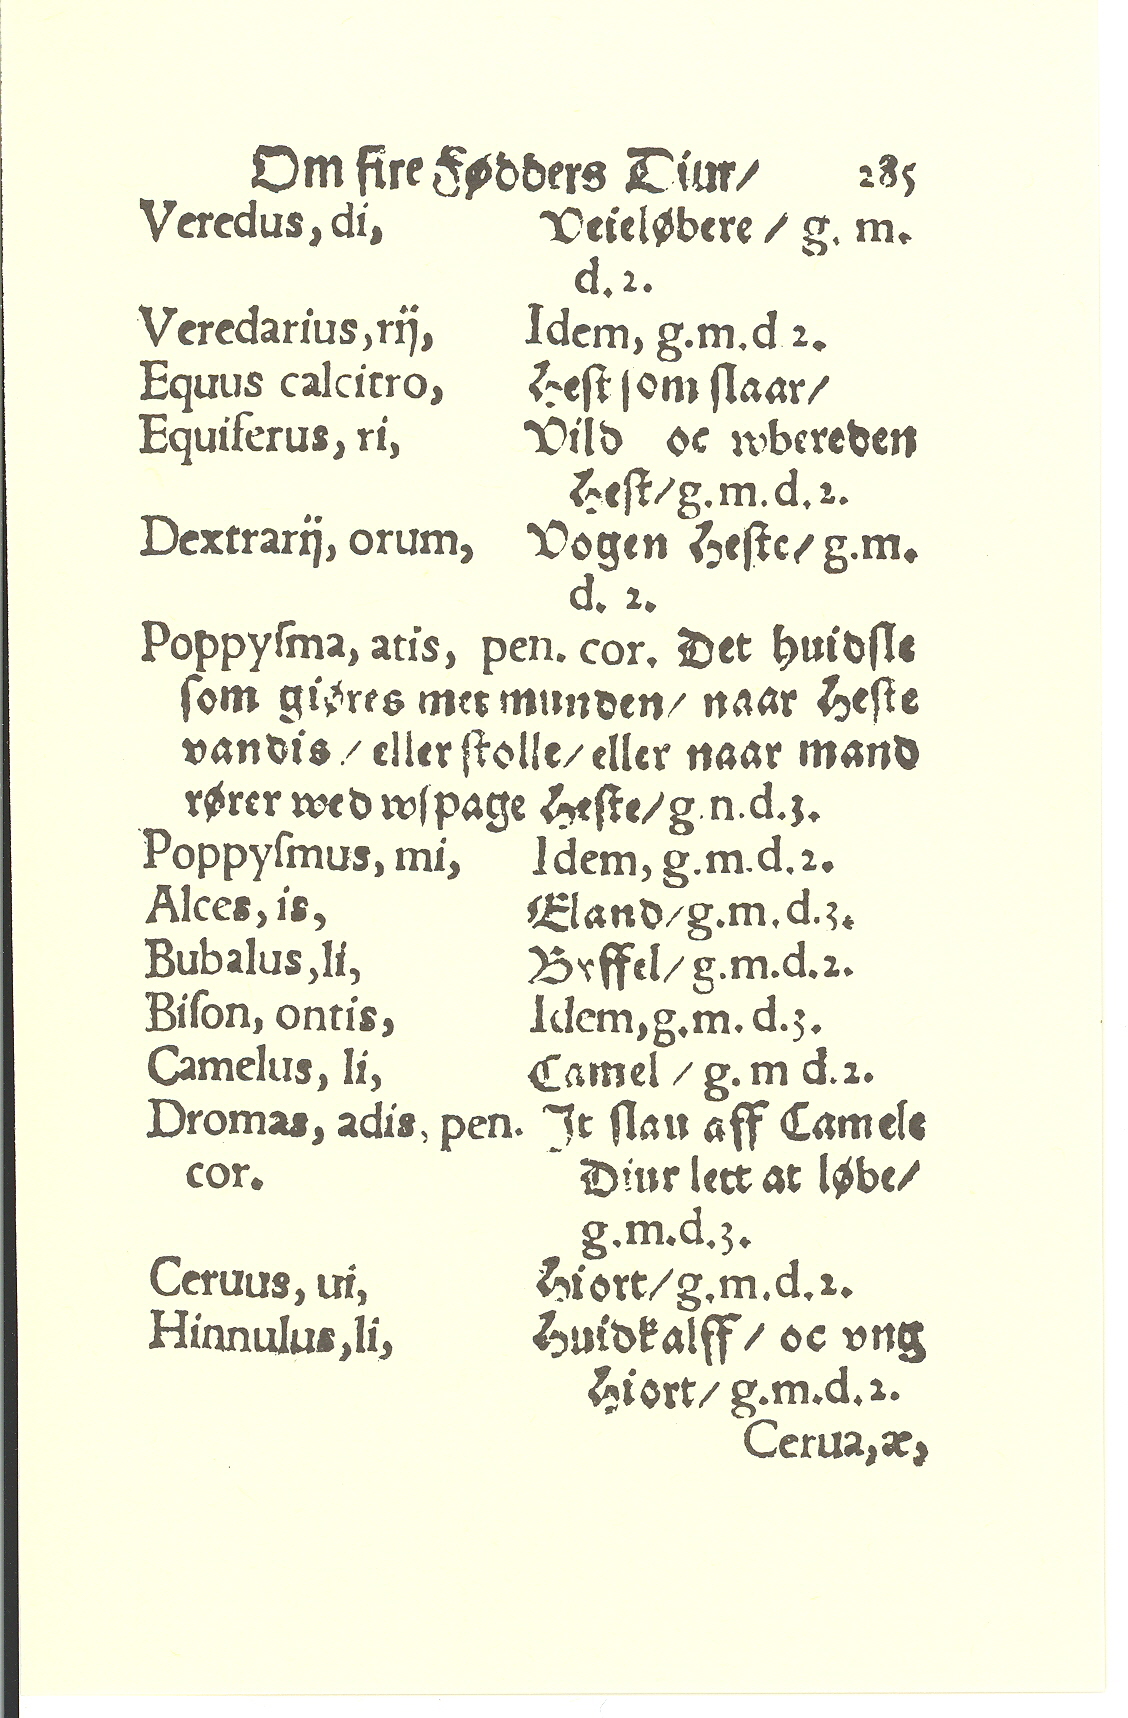 Om fire Fødders Diur/ 285
Veredus, di, Veieløbere / g. m.
d. 2.
Veredarius, rij, Idem, g.m.d 2.
Equus calcitro, Hest som slaar/
Equiferus, ri, Vild oc wbereden
Hest/ g.m.d.2.
Dextrarij, orum, Vogen Heste/ g.m.
d. 2.
Poppyſma, atis, pen. cor. Det huidsle
ſom giøres met munden/ naar Heſte
vandis / eller ſtolle/ eller naar mand
rører wed wſpage Heſte/ g.n.d.3.
Poppyſmus, mi, Idem, g.m.d.2.
Alces, is, Eland/ g.m.d.3.
Bubalus, li, Byffel/ g.m.d.2.
Biſon, ontis, Idem, g.m.d.3.
Camelus, li, Camel / g. m d.2.
Dromas, adis, pen. It ſlau aff Camele
cor. Diur lett at løbe/
g.m.d.3.
Ceruus, ui, Hiort/ g.m.d.2.
Hinnulus, li, Huidkalff/ oc vng
Hiort/ g.m.d.2.
Cerua, æ,